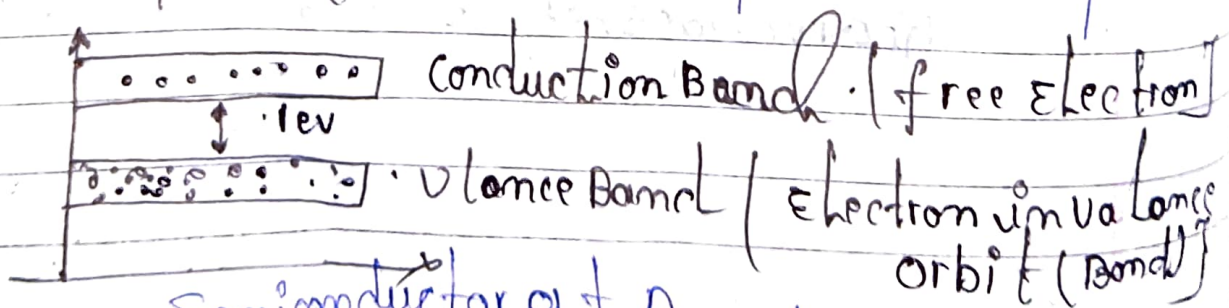 Conduction Band. [free Electron]
.1ev
. Vlance Band [Electron in valance
orbit (Bond)]
Semiconductor at